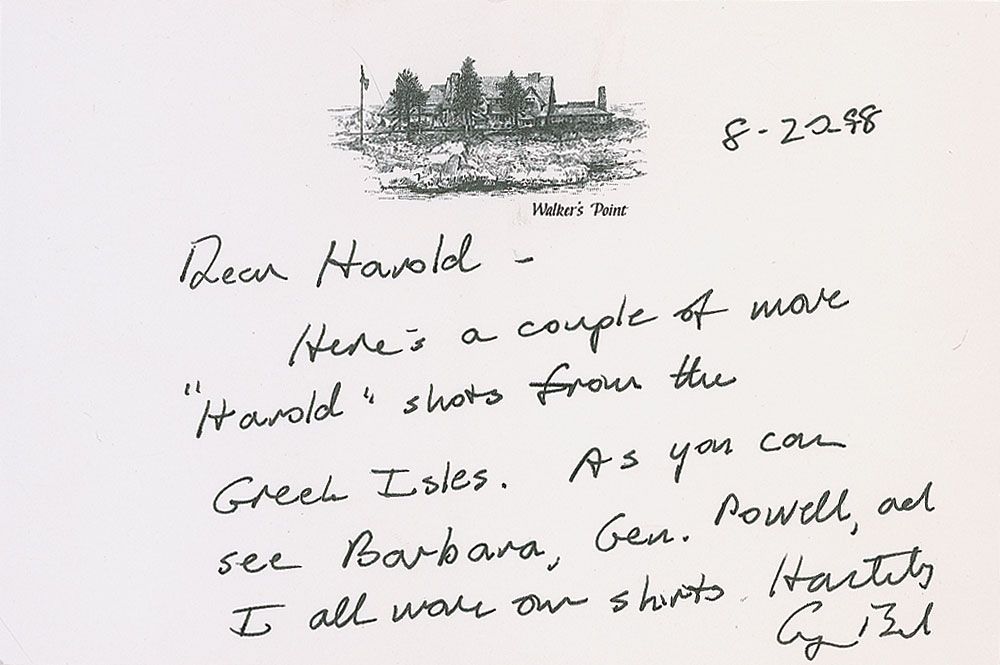 8-20-98
Walker's Point
Dear Harold -
Here's a couple of more
"Harold" shots from the
Greek Isles. As you can
see Barbara, Gen. Powell, and
I all wore our shirts. Hastily